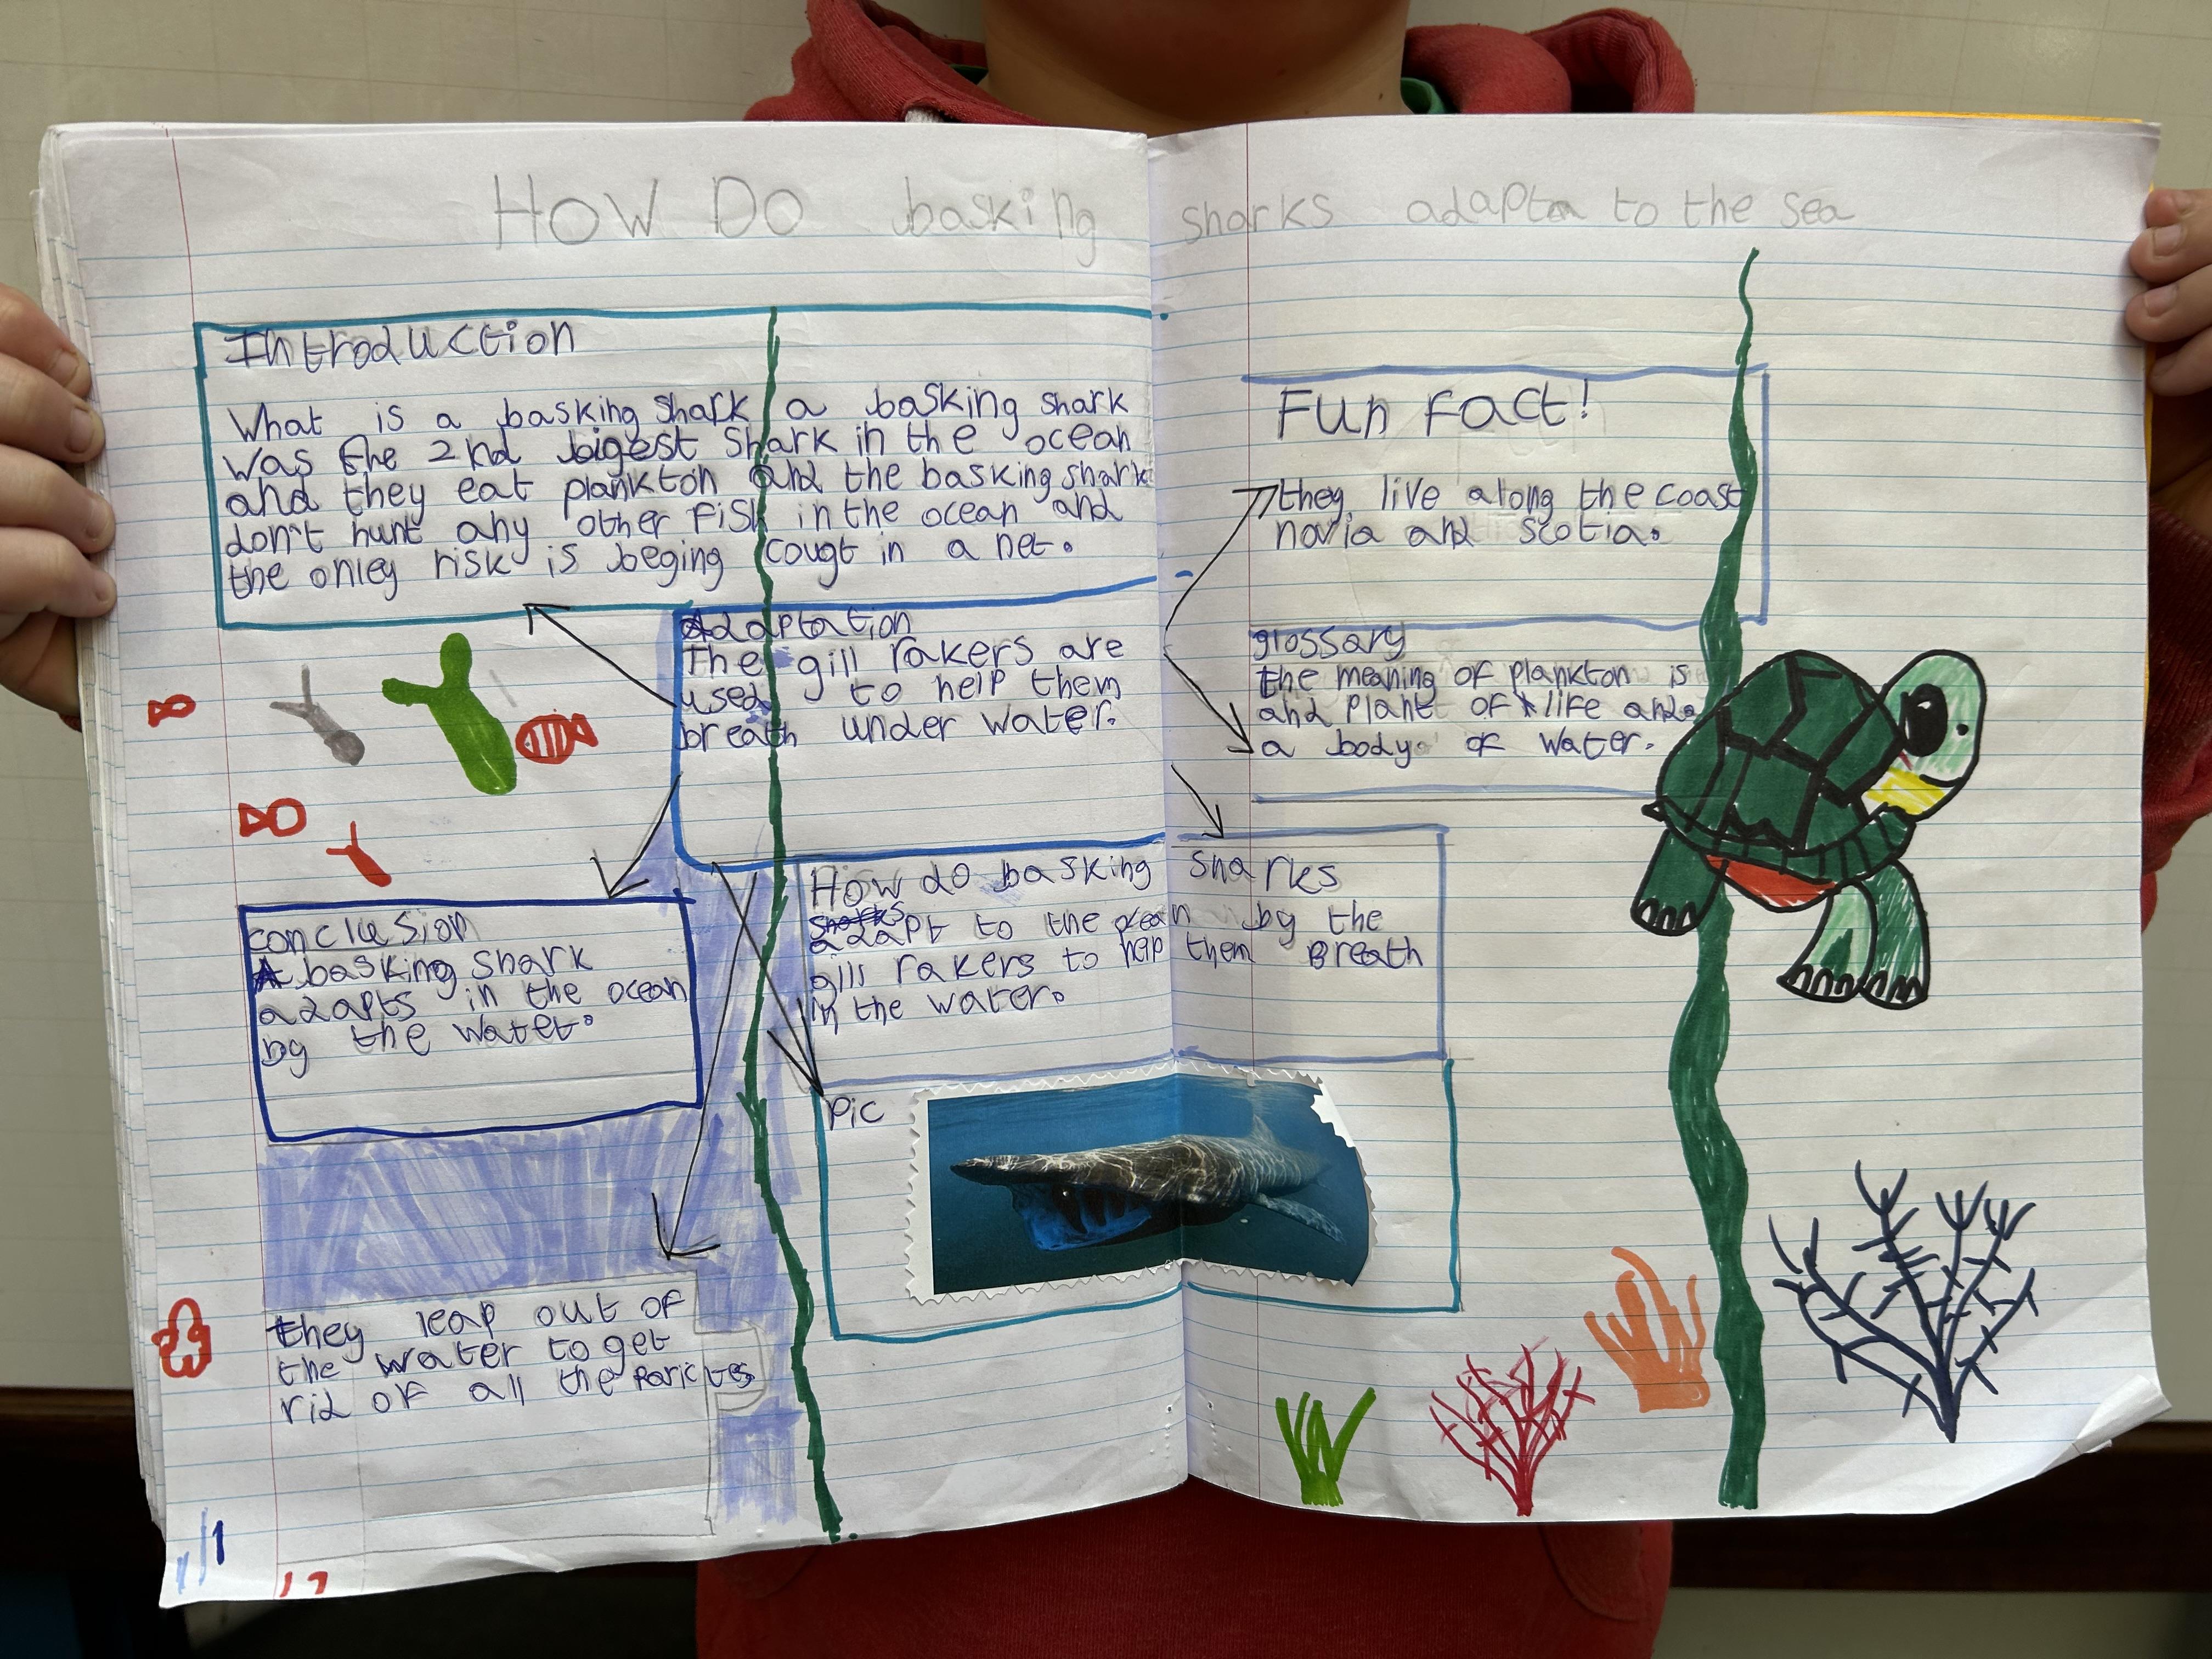 HOW DO basking sharks adapt to the sea
Introduction
What is a basking shark a basking shark
was the 2nd bigest shark in the ocean
and they eat plankton and the basking shark
don't hunt any other fish in the ocean and
the onley risk is beging cougt in a net.
Adaptation
The gill rakers are
used to help them
breath under water.
conclusion
A basking shark
adapts in the ocean
by the water.
they leap out of
the water to get
rid of all the parictes
Fun fact!
they live along the coast
novia and scotia.
glossary
the meaning of plankton is
and plant of life and a
a body of water.
How do basking sharks
adapt to the ocean by the
gill rakers to help them breath
in the water.
Pic